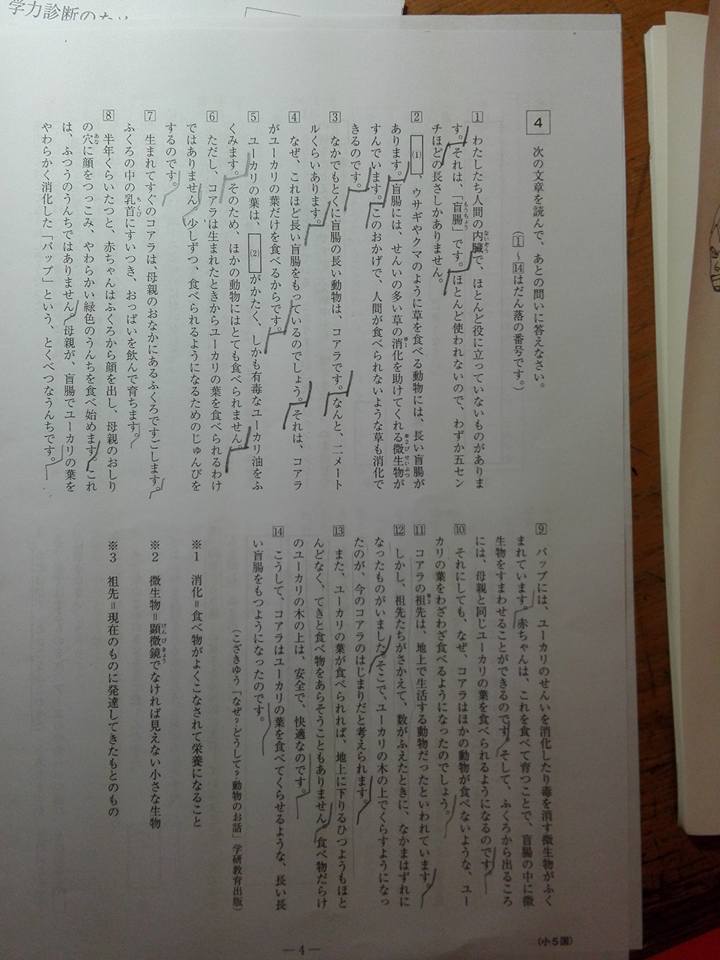 学力診断のため
4　次の文章を読んで、あとの問いに答えなさい。
（1～14はだん落の番号です。）
1　わたしたち人間の内臓で、ほとんど役に立っていないものがありま
す。それは、「盲腸」です。ほとんど使われないので、わずか五セン
チほどの長さしかありません。
2　(1)、ウサギやクマのように草を食べる動物には、長い盲腸が
あります。盲腸には、せんいの多い草の消化を助けてくれる微生物が
すんでいます。このおかげで、人間が食べられないような草も消化で
きるのです。
3　なかでもとくに盲腸の長い動物は、コアラです。なんと、二メート
ルくらいあります。
4　なぜ、これほど長い盲腸をもっているのでしょう。それは、コアラ
がユーカリの葉だけを食べるからです。
5　ユーカリの葉は、(2)がかたく、しかも有毒なユーカリ油をふ
くみます。そのため、ほかの動物にはとても食べられません。
6　ただし、コアラは生まれたときからユーカリの葉を食べられるわけ
ではありません。少しずつ、食べられるようになるためのじゅんびを
するのです。
7　生まれてすぐのコアラは、母親のおなかにあるふくろですごします。
ふくろの中の乳首にすいつき、おっぱいを飲んで育ちます。
8　半年くらいたつと、赤ちゃんはふくろから顔を出し、母親のおしり
の穴に顔をつっこみ、やわらかい緑色のうんちを食べ始めます。これ
は、ふつうのうんちではありません。母親が、盲腸でユーカリの葉を
やわらかく消化した「パップ」という、とくべつなうんちです。
9　パップには、ユーカリのせんいを消化したり毒を消す微生物がふく
まれています。赤ちゃんは、これを食べて育つことで、盲腸の中に微
生物をすまわせることができるのです。そして、ふくろから出るころ
には、母親と同じユーカリの葉を食べられるようになるのです。
10　それにしても、なぜ、コアラはほかの動物が食べないような、ユー
カリの葉をわざわざ食べるようになったのでしょう。
11　コアラの祖先は、地上で生活する動物だったといわれています。
12　しかし、祖先たちがさかえて、数がふえたときに、なかまはずれに
なったものがいました。そこで、ユーカリの木の上でくらすようになっ
たのが、今のコアラのはじまりだと考えられます。
13　また、ユーカリの葉が食べられれば、地上に下りるひつようもほと
んどなく、てきと食べ物をあらそうこともありません。食べ物だらけ
のユーカリの木の上は、安全で、快適なのです。
14　こうして、コアラはユーカリの葉を食べてくらせるような、長い長
い盲腸をもつようになったのです。
（こざきゆう「なぜ？どうして？動物のお話」学研教育出版）
※1　消化＝食べ物がよくこなされて栄養になること
※2　微生物＝顕微鏡でなければ見えない小さな生物
※3　祖先＝現在のものに発達してきたもとのもの
―4―
（小5国）